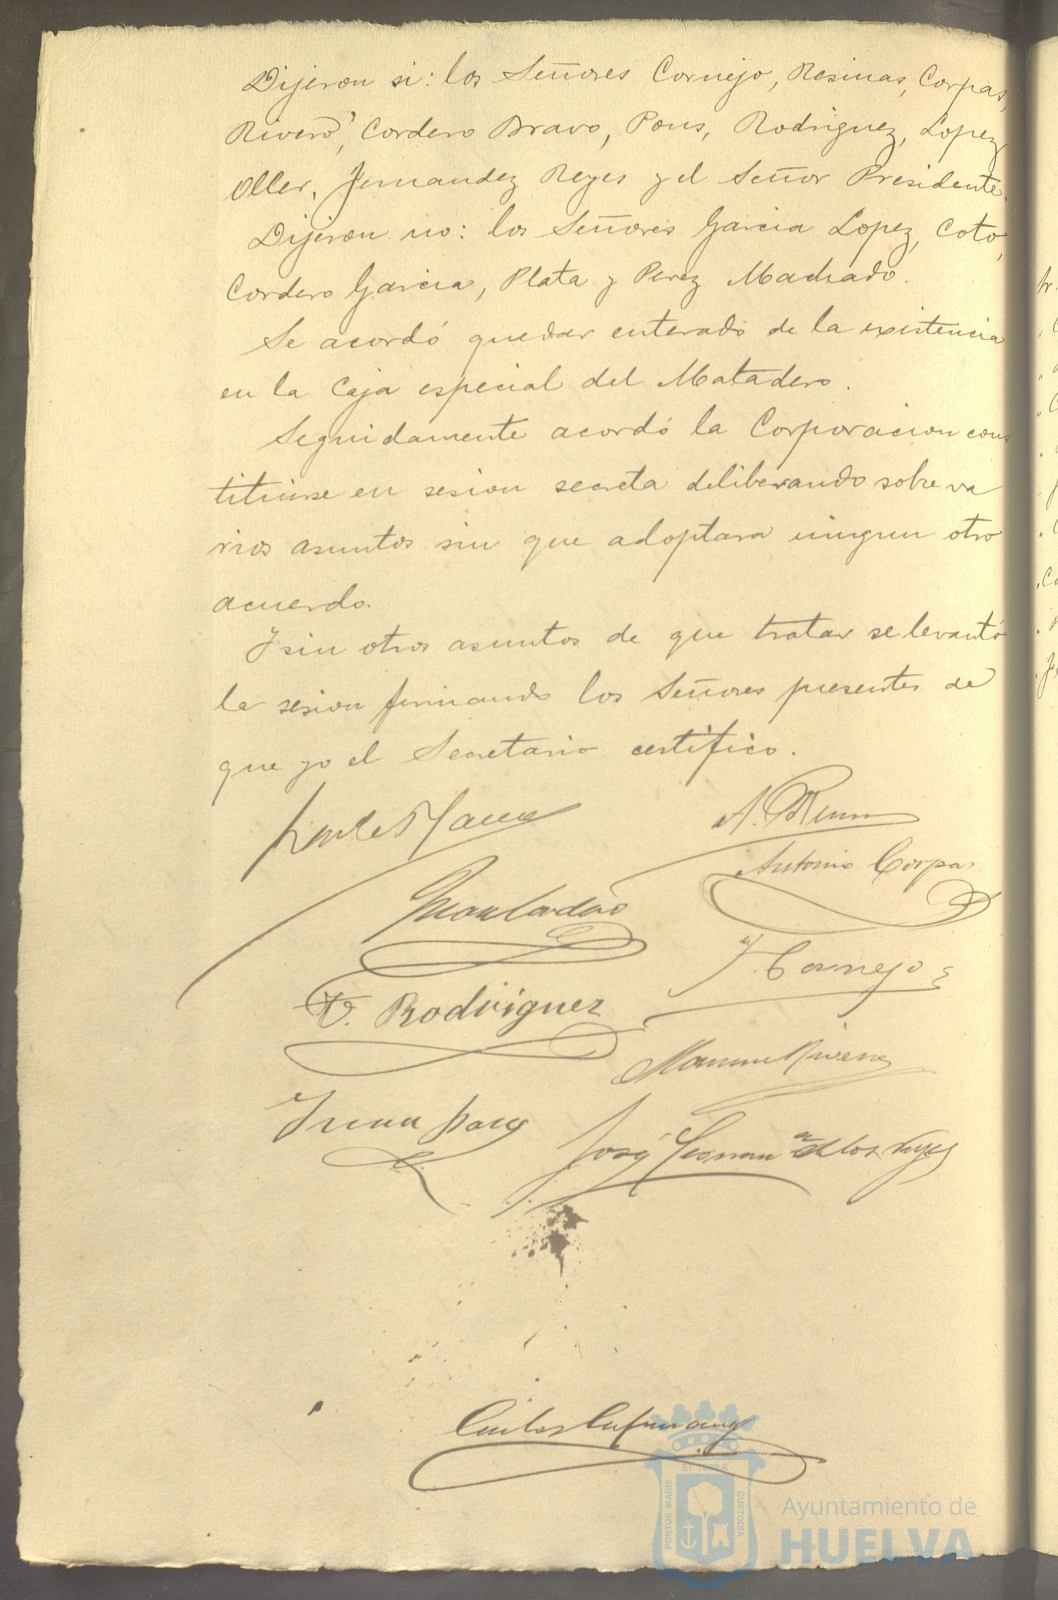 Dijeron si: los Señores Cornejo, Resinas, Corpas,
Rivero, Cordero Bravo, Pons, Rodriguez, Lopez
Oller, Fernandez Reyes y el Señor Presidente.
Dijeron no: los Señores Garcia Lopez, Coto,
Cordero Garcia, Plata y Perez Machado.
Se acordó quedar enterado de la existencia
en la Caja especial del Matadero.
Seguidamente acordó la Corporacion cons
tituirse en sesion secreta deliberando sobre va
rios asuntos sin que adoptara ningun otro
acuerdo.
Y sin otros asuntos de que tratar se levantó
la sesion firmando los Señores presentes de
que yo el Secretario certifico.
Antonio Corpas
Juan Cordero
J. Cornejo
V. Rodriguez
Manuel Rivero
Juan Pons
José Fernan de los Reyes
PORTUS MARIS
ET TERRÆ
CUSTODIA
Ayuntamiento de
HUELVA